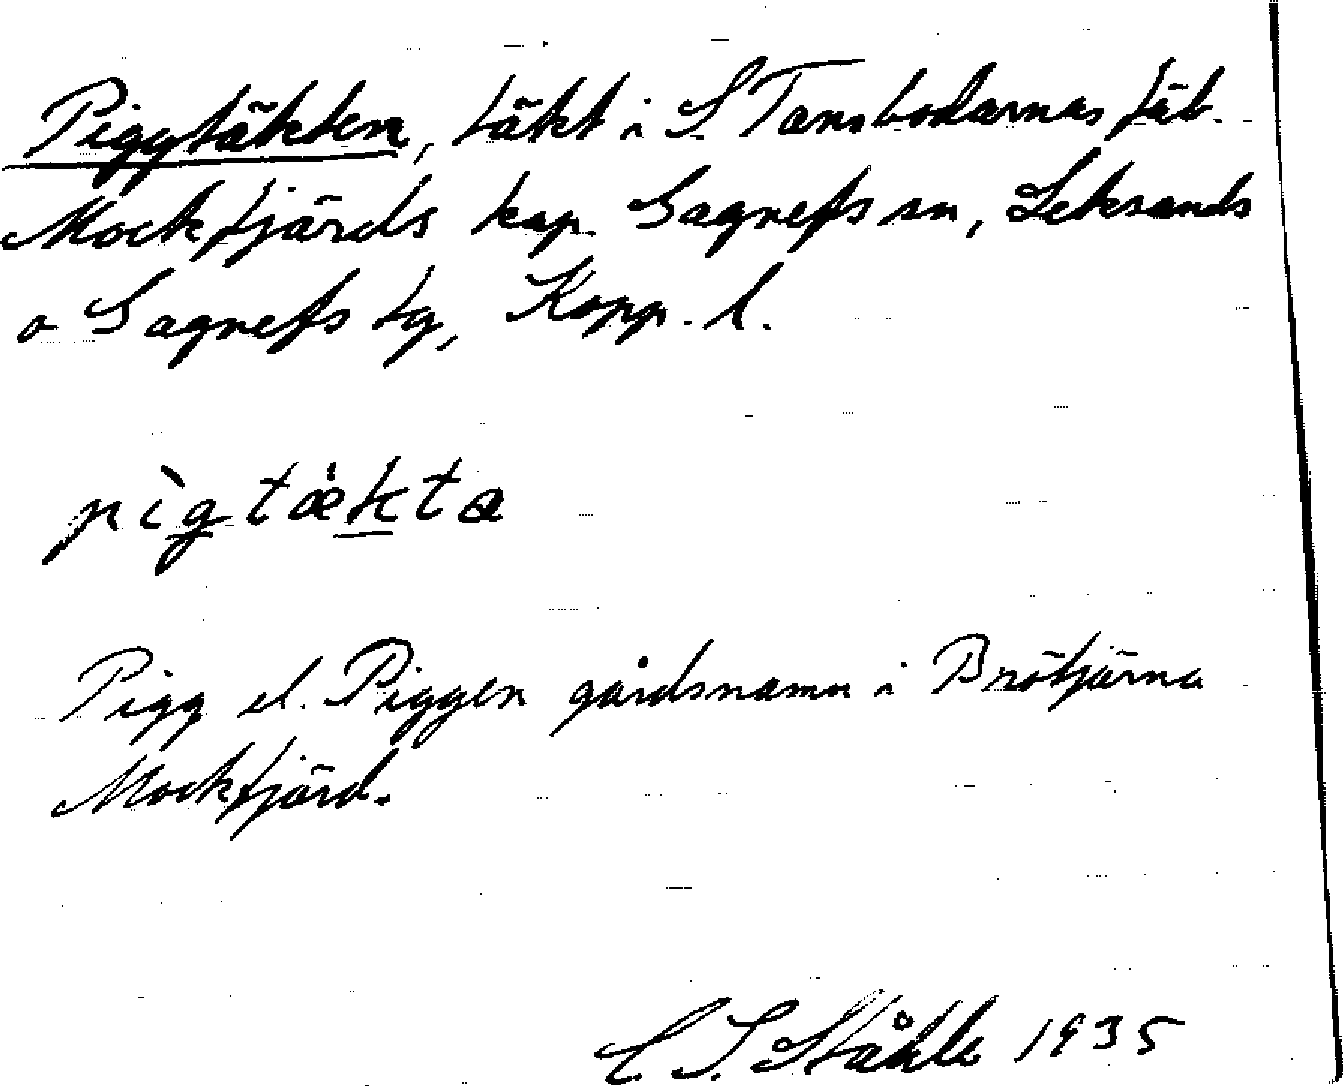 Piggtäkten, täkt i S. Tansbodarnas fäb.
Mockfjärds kap. Gagnefs sn, Leksands
o Gagnefs tg, Kopp. l.
pìgtækta
Pigg el. Piggen gårdsnamn i Brötjärna
Mockfjärd.
C. I. Ståhle 1935